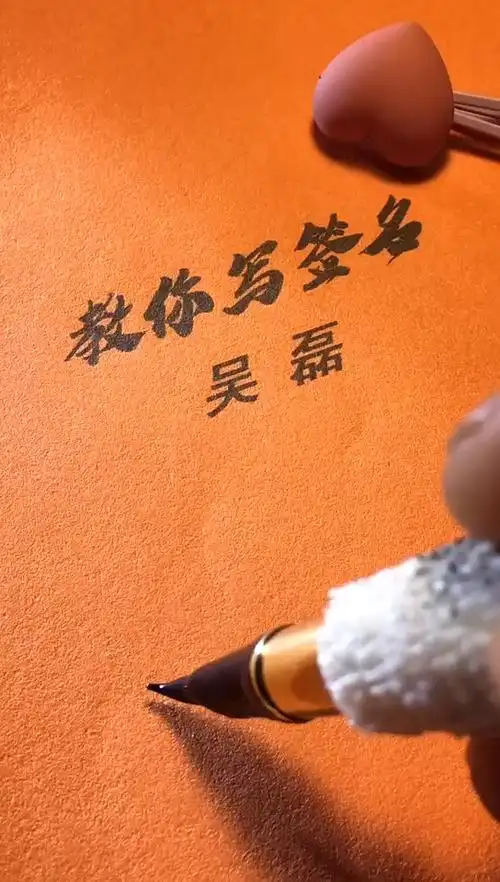 教你写签名
吴磊